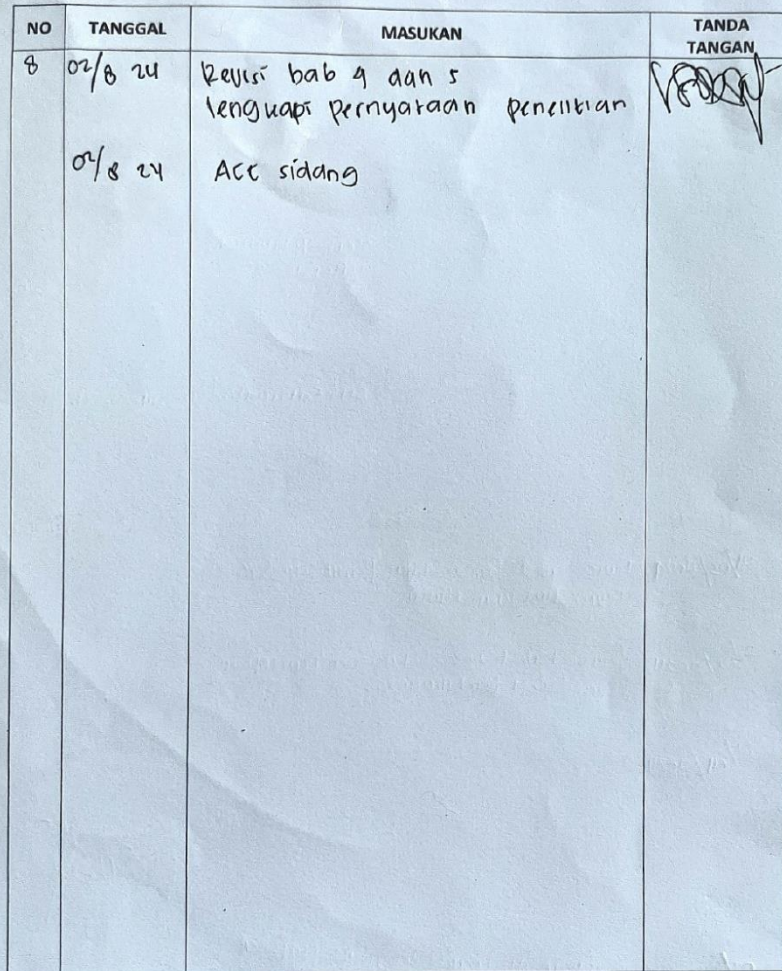 NO TANGGAL MASUKAN TANDA TANGAN
8 02/8 24 Revisi bab 4 dan 5
lengkapi pernyataan penelitian
02/8 24 Acc sidang